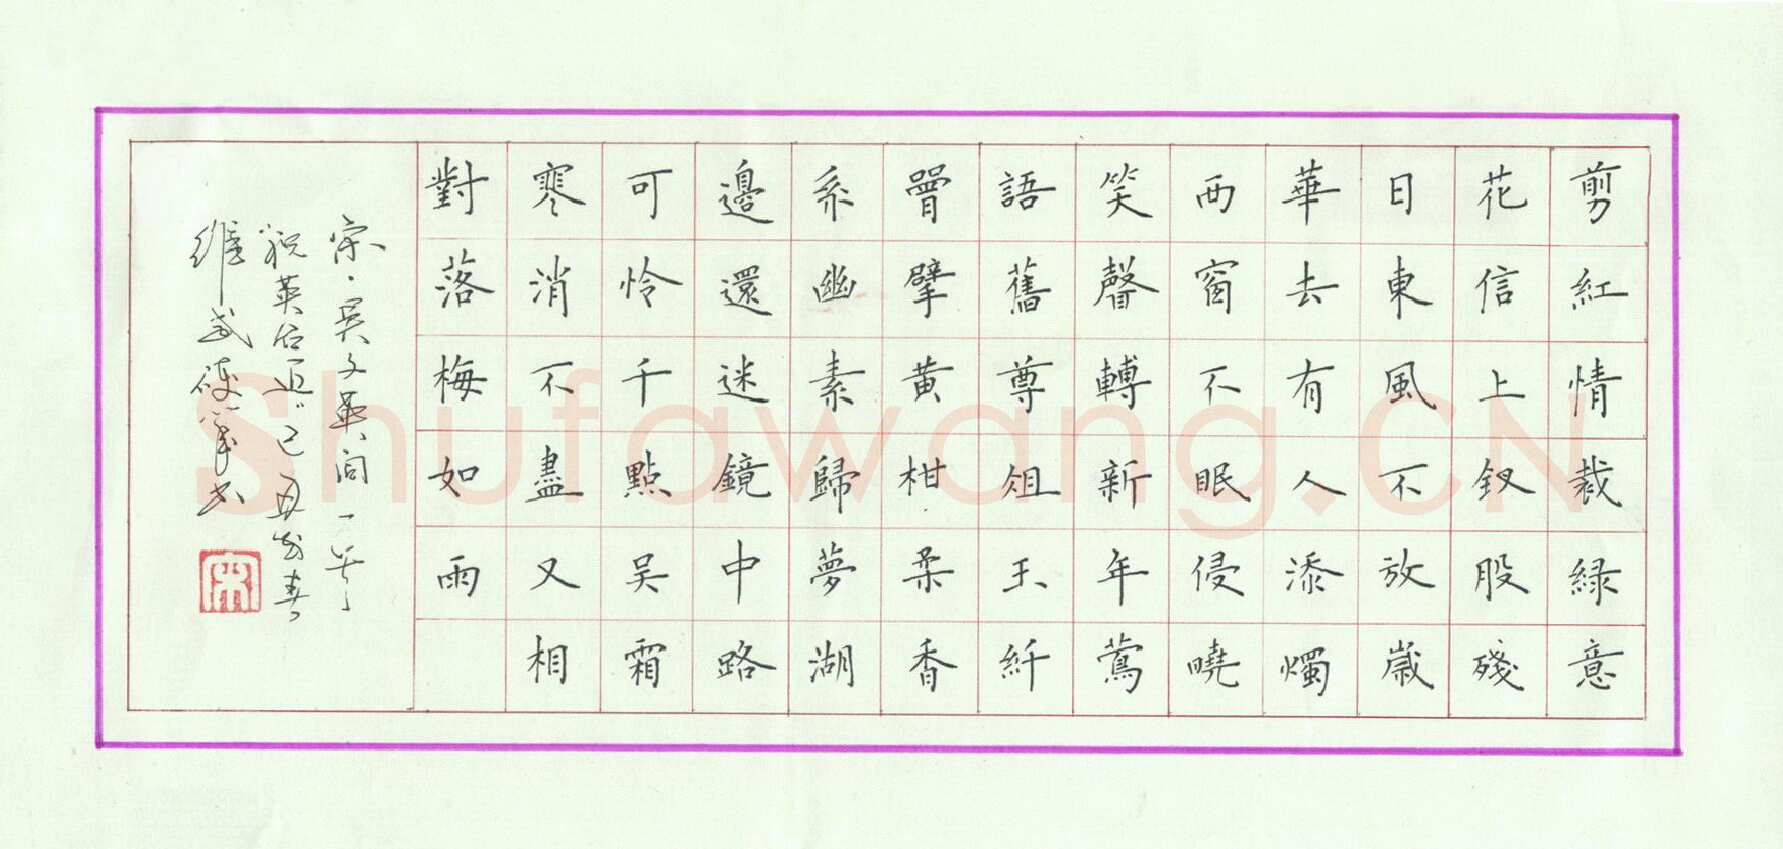 剪紅情裁緑意
花信上釵股殘
日東風不放歲
華去有人添燭
西窗不眠侵曉
笑聲轉新年鶯
語舊尊俎玉纤
曾擘黄柑柔香
系幽素歸夢湖
邊還迷鏡中路
可怜千點吴霜
寒消不盡又相
對落梅如雨
宋·吴文英词一首
祝英台近 己丑春
維武硬筆书
Shufawang.CN